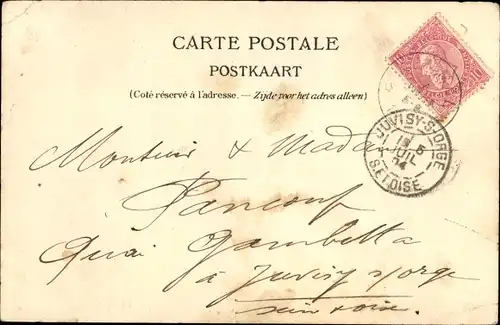 CARTE POSTALE
POSTKAART
(Coté réservé à l'adresse. — Zijde voor het adres alleen)
JUVISY-S-ORGE
5
JUIL
04
S.ET OISE
Monsieur & Madame
Pancouf
Quai Gambetta
à Juvisy s/orge
Seine & oise.